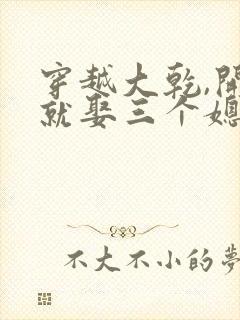 穿越大乾,開
就娶三个媳
不大不小的夢